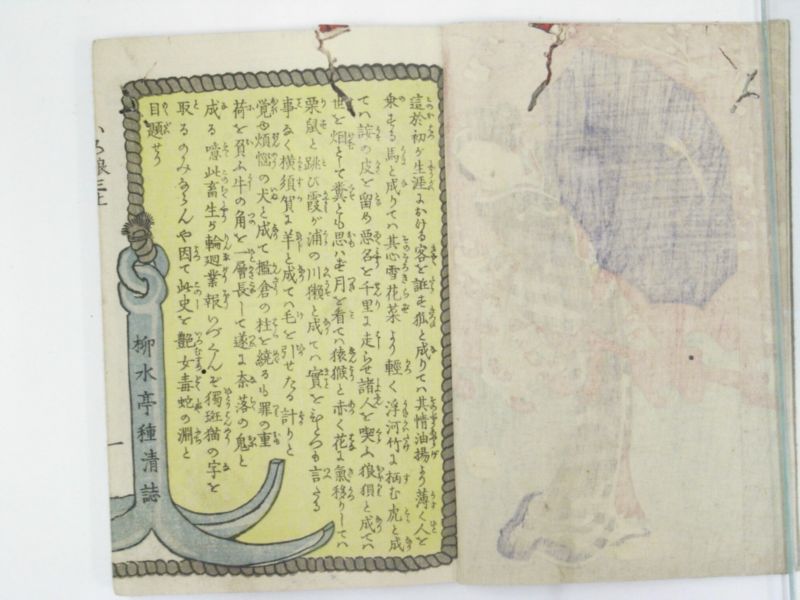 這於初が生涯にかける客を誑す狐と成りては其情油揚より薄く人を
乗する馬と成りては其心雪花菜より軽く浮河竹に栖む虎と成
ては諺の皮を留め悪名を千里に走らせ諸人を喫ふ狼狽と成ては
世を畑として糞とも思はず月を看ては猿猴と赤く花に氣移りしては
栗鼠と跳び霞が浦の川獺と成ては實をむくろも言たる
事なく横須賀に羊と成ては毛を引せたる計りと
覚也煩悩の犬と成て檻倉の柱を繞るも罪の重
荷を負ふ牛の角を一層長して遂に奈落の鬼と
成る噫此畜生が輪廻業報いづくんぞ獨斑猫の字を
取るのみならんや因て此史を艶女毒蛇の淵と
目題せり
柳水亭種清誌
一